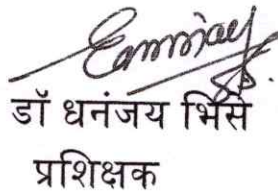 डॉ धनंजय भिसे
प्रशिक्षक